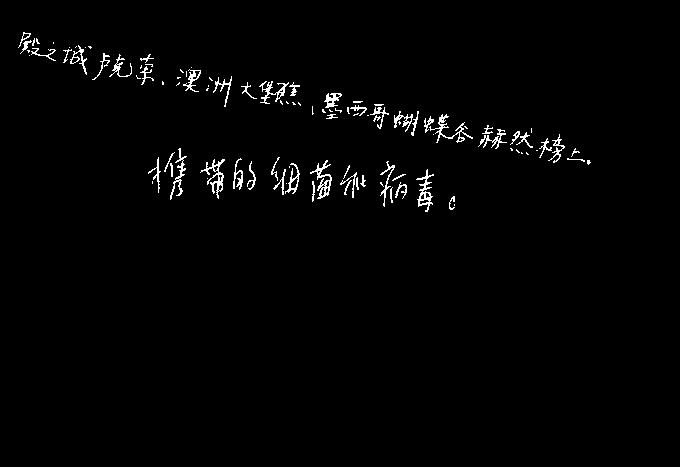 殿之城卢克索、澳洲大堡礁、墨西哥蝴蝶谷赫然榜上。
携带的细菌和病毒。